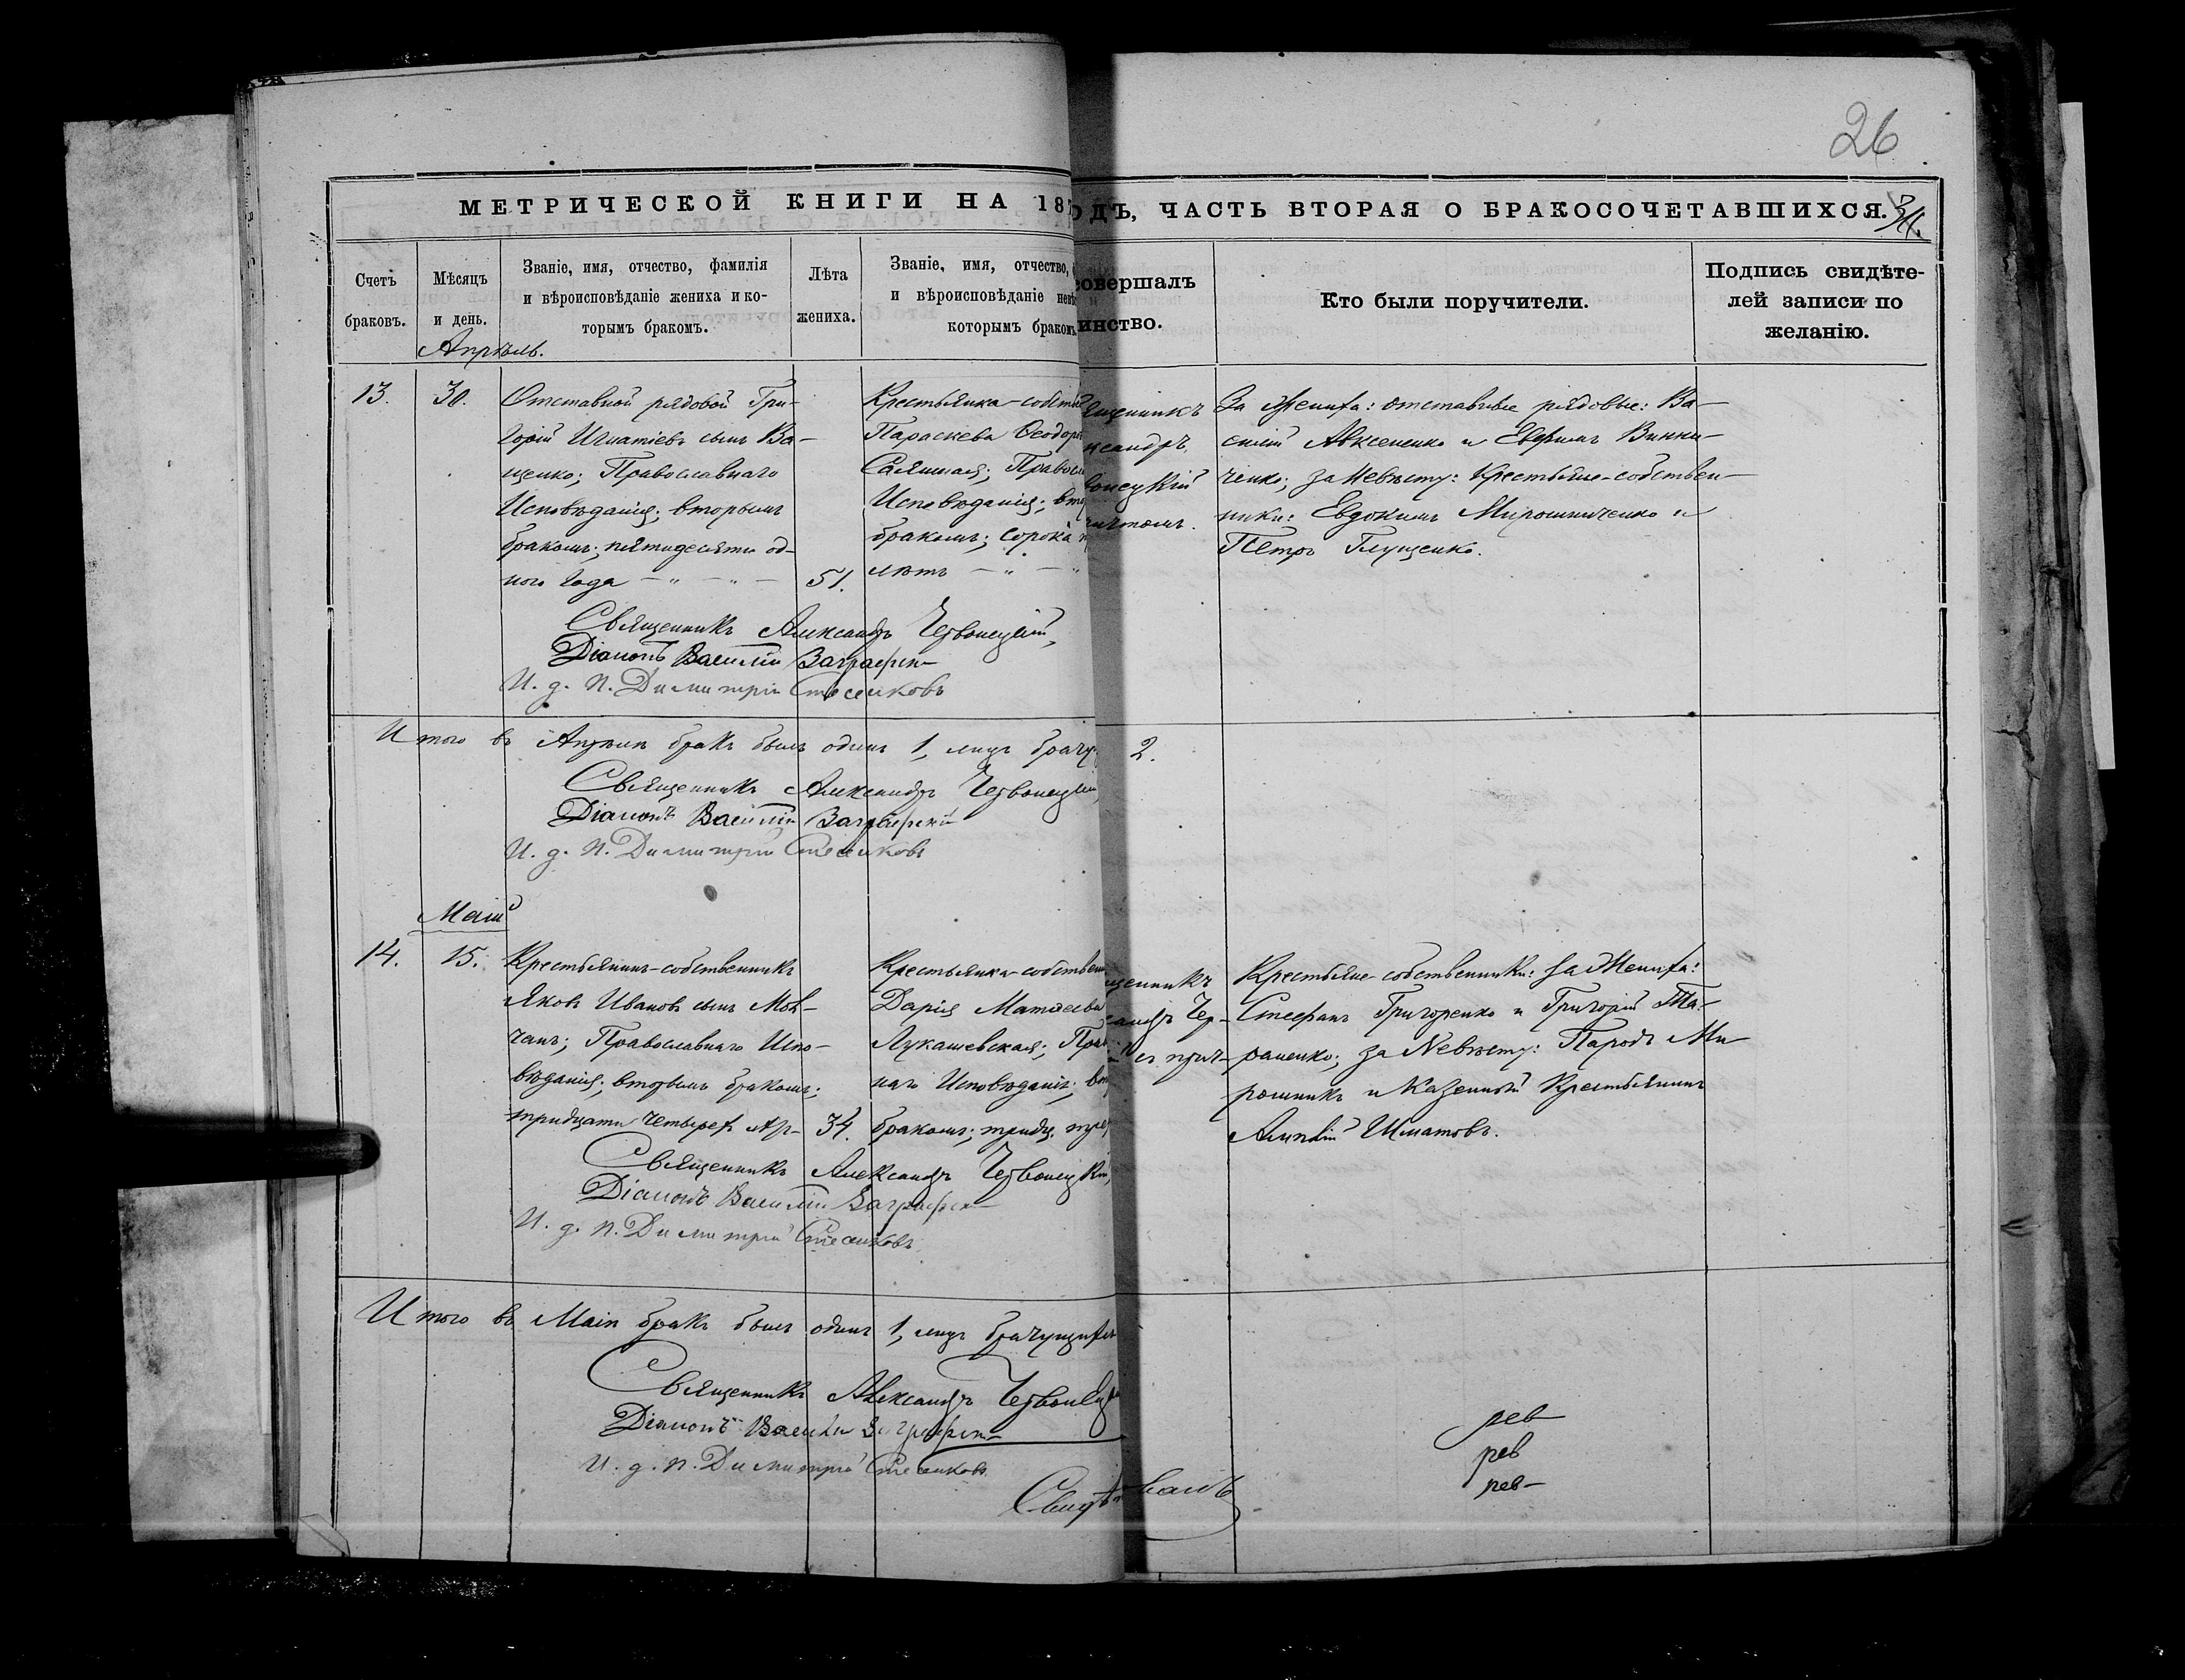 26
МЕТРИЧЕСКОЙ КНИГИ НА 18
ОДЪ, ЧАСТЬ ВТОРАЯ О БРАКОСОЧЕТАВШИХСЯ.
Счетъ браковъ.
Мѣсяцъ и день.
Званіе, имя, отчество, фамилія
и вѣроисповѣданіе жениха и ко-
торымъ бракомъ.
Лѣта жениха.
Званіе, имя, отчество,
и вѣроисповѣданіе невѣ
которымъ бракомъ
совершалъ
инство.
Кто были поручители.
Подпись свидѣте-
лей записи по
желанію.
Апрѣль.
13.
30.
Отставной рядовой Гри-
горій Игнатіевъ сынъ Ва-
щенко; Православнаго
Исповѣданія; вторымъ
бракомъ; пятидесяти од-
ного года
51.
Крестьянка-собств
Параскева Ѳеодор
Православ
Исповѣданія; вто
бракомъ; сорока
лѣтъ
ященникъ
ксандръ
вонецкій
ичтомъ.
За Жениха: отставные рядовые: Ва-
силій Авксененко и Евфимъ Винни-
ченко; за Невѣсту: Крестьяне-собствен-
ники: Евдокимъ Мирошниченко и
Петръ Глущенко.
Священникъ Александръ Червонецкій,
Діаконъ Василій Заграфскій
И. д. п. Димитрій Стесиковъ
Итого въ Апрѣлѣ бракъ былъ одинъ 1, лицъ брачу
2.
Священникъ Александръ Червонецкій,
Діаконъ Василій Заграфскій
И. д. п. Димитрій Стесиковъ
Маій
14.
15.
Крестьянинъ-собственникъ
Яковъ Ивановъ сынъ Мов-
чанъ; Православнаго Испо-
вѣданія; вторымъ бракомъ;
тридцати четырех лѣ-
34.
Крестьянка-собствен
Дарія Матѳеева
Лукашевская; Прав
наго Исповѣданія; вт
бракомъ; тридц. трех
щенникъ
сандръ Чер-
съ прич-
Крестьяне-собственники: за Жениха:
Стефанъ Григоренко и Григорій Та-
раненко; за Невѣсту: Ми
рошникъ и Казенный Крестьянинъ
Алипій Шматовъ.
Священникъ Александръ Червонецкій,
Діаконъ Василій Заграфскій
И. д. п. Димитрій Стесиковъ
Итого въ Маіѣ бракъ былъ одинъ 1, лицъ брачущихся
Священникъ Александръ Червонец
Діаконъ Василій Заграфскій
И. д. п. Димитрій Стесиковъ
рев
рев
рев